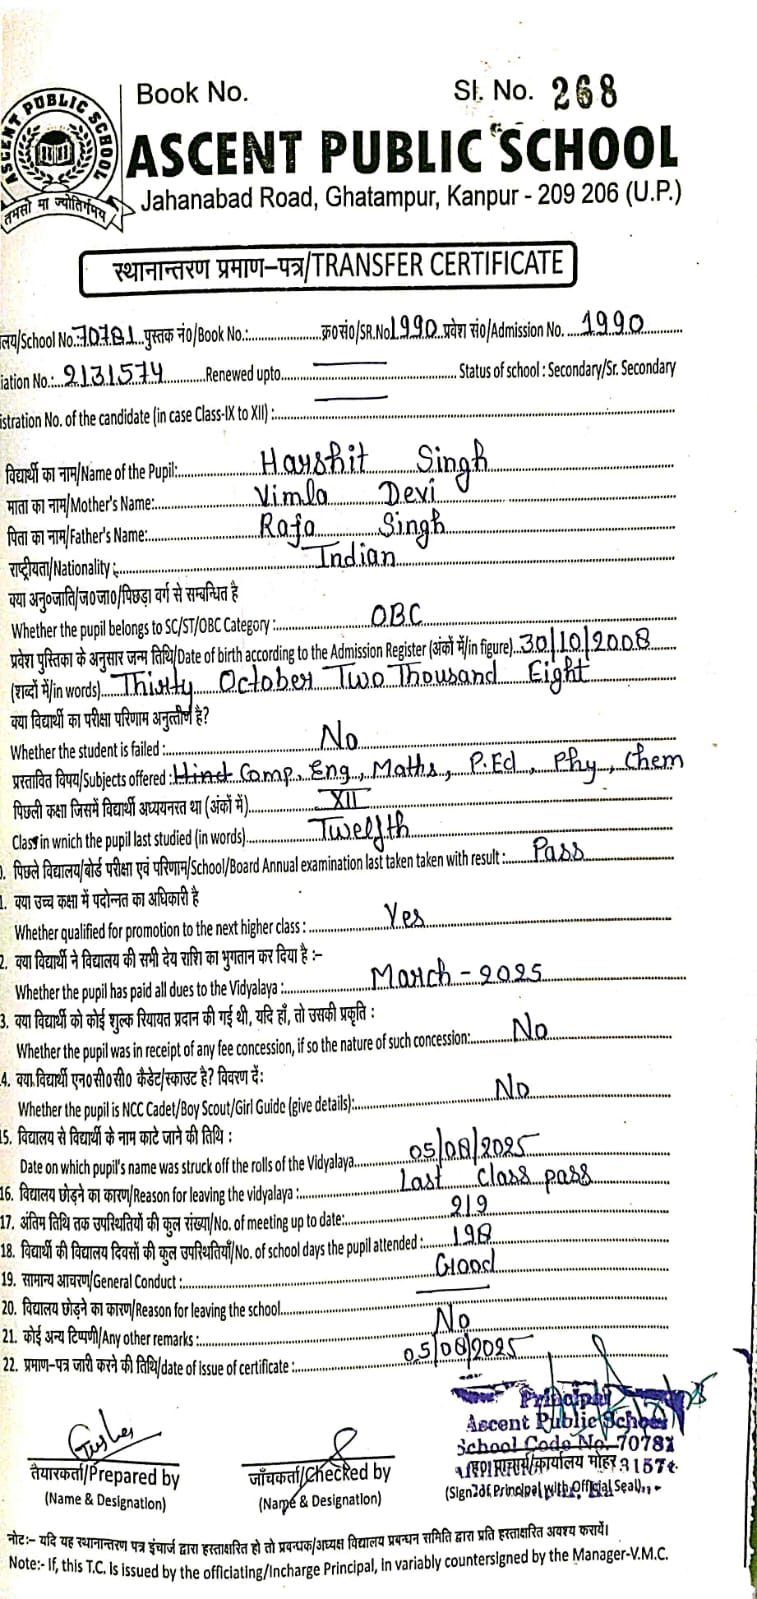 Book No. Sl. No. 268
ASCENT PUBLIC SCHOOL
तमसो मा ज्योतिर्गमय
ASCENT PUBLIC SCHOOL
Jahanabad Road, Ghatampur, Kanpur - 209 206 (U.P.)
स्थानान्तरण प्रमाण-पत्र/TRANSFER CERTIFICATE
लय/School No.:70781 पुस्तक नं०/Book No.: क्र०सं०/SR.No1990 प्रवेश सं०/Admission No. 1990
iation No.: 2131574 Renewed upto Status of school : Secondary/Sr. Secondary
istration No. of the candidate (in case Class-IX to XII) :
विद्यार्थी का नाम/Name of the Pupil: Harshit Singh
माता का नाम/Mother's Name: Vimla Devi
पिता का नाम/Father's Name: Raja Singh
राष्ट्रीयता/Nationality : Indian
क्या अनु०जाति/ज०जा०/पिछड़ा वर्ग से सम्बन्धित है
Whether the pupil belongs to SC/ST/OBC Category : OBC
प्रवेश पुस्तिका के अनुसार जन्म तिथि/Date of birth according to the Admission Register (अंकों में/in figure). 30/10/2008
(शब्दों में/in words) Thirty October Two Thousand Eight
क्या विद्यार्थी का परीक्षा परिणाम अनुत्तीर्ण है?
Whether the student is failed : No
प्रस्तावित विषय/Subjects offered : Comp, Eng, Maths, P.Ed, Phy, Chem
पिछली कक्षा जिसमें विद्यार्थी अध्ययनरत था (अंकों में) XII
Class in wnich the pupil last studied (in words) Twelfth
). पिछले विद्यालय/बोर्ड परीक्षा एवं परिणाम/School/Board Annual examination last taken taken with result : Pass
1. क्या उच्च कक्षा में पदोन्नत का अधिकारी है
Whether qualified for promotion to the next higher class : Yes
2. क्या विद्यार्थी ने विद्यालय की सभी देय राशि का भुगतान कर दिया है :-
Whether the pupil has paid all dues to the Vidyalaya : March - 2025
3. क्या विद्यार्थी को कोई शुल्क रियायत प्रदान की गई थी, यदि हाँ, तो उसकी प्रकृति :
Whether the pupil was in receipt of any fee concession, if so the nature of such concession: No
4. क्या विद्यार्थी एन०सी०सी० कैडेट/स्काउट है? विवरण दें:
Whether the pupil is NCC Cadet/Boy Scout/Girl Guide (give details): No
15. विद्यालय से विद्यार्थी के नाम काटे जाने की तिथि :
Date on which pupil's name was struck off the rolls of the Vidyalaya 05/08/2025
16. विद्यालय छोड़ने का कारण/Reason for leaving the vidyalaya : Last Class pass
17. अंतिम तिथि तक उपस्थितियों की कुल संख्या/No. of meeting up to date: 219
18. विद्यार्थी की विद्यालय दिवसों की कुल उपस्थितियाँ/No. of school days the pupil attended : 198
19. सामान्य आचरण/General Conduct : Good
20. विद्यालय छोड़ने का कारण/Reason for leaving the school
21. कोई अन्य टिप्पणी/Any other remarks : No
22. प्रमाण-पत्र जारी करने की तिथि/date of issue of certificate : 05/08/2025
Principal
Ascent Public School
School Code No. 70781
तैयारकर्ता/Prepared by जाँचकर्ता/Checked by प्राचार्य/कार्यालय मोहर
(Name & Designation) (Name & Designation) (Sign of Principal with Official Seal)
नोट:- यदि यह स्थानान्तरण पत्र इंचार्ज द्वारा हस्ताक्षरित हो तो प्रबन्धक/अध्यक्ष विद्यालय प्रबन्धन समिति द्वारा प्रति हस्ताक्षरित अवश्य करायें।
Note:- If, this T.C. is issued by the officiating/Incharge Principal, in variably countersigned by the Manager-V.M.C.